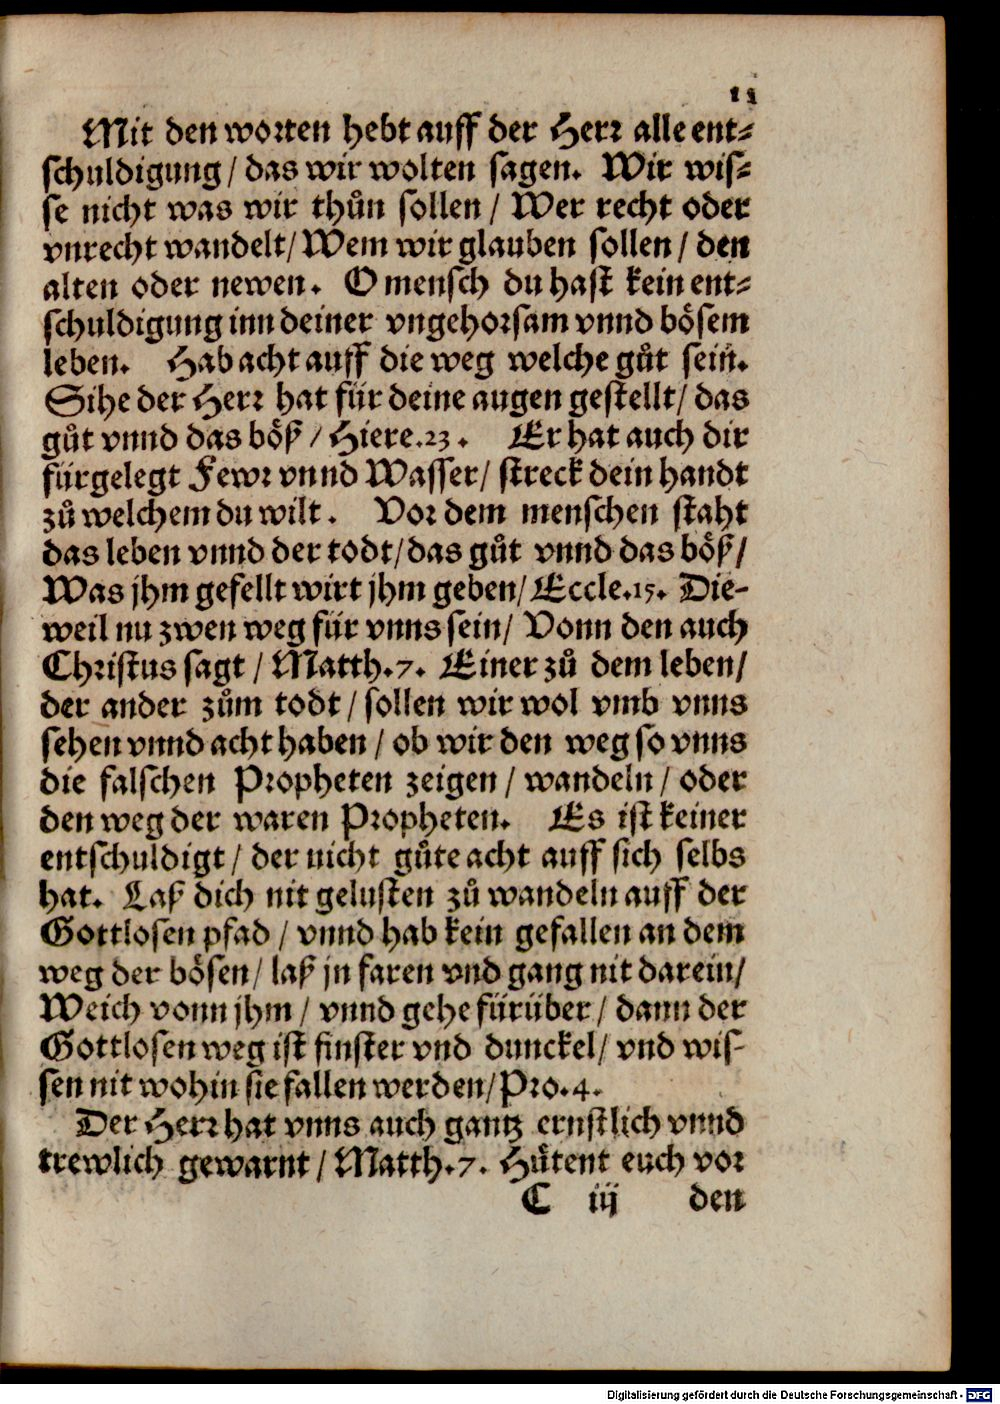 11
Mit den worten hebt auff der Herr alle ent⸗
schuldigung / das wir wolten sagen. Wir wis⸗
se nicht was wir thůn sollen / Wer recht oder
vnrecht wandelt/ Wem wir glauben sollen / den
alten oder newen. O mensch du hast kein ent⸗
schuldigung inn deiner vngehorsam vnnd bösem
leben. Hab acht auff die weg welche gůt sein.
Sihe der Herr hat für deine augen gestellt/ das
gůt vnnd das böß / Hiere.23. Er hat auch dir
fürgelegt Fewr vnnd Wasser/ streck dein handt
zů welchem du wilt. Vor dem menschen staht
das leben vnnd der todt/ das gůt vnnd das böß/
Was jhm gefellt wirt jhm geben/ Eccle.15. Die-
weil nu zwen weg für vnns sein/ Vonn den auch
Christus sagt / Matth.7. Einer zů dem leben/
der ander zům todt / sollen wir wol vmb vnns
sehen vnnd acht haben / ob wir den weg so vnns
die falschen Propheten zeigen / wandeln / oder
den weg der waren Propheten. Es ist keiner
entschuldigt / der nicht gůte acht auff sich selbs
hat. Laß dich nit gelusten zů wandeln auff der
Gottlosen pfad / vnnd hab kein gefallen an dem
weg der bösen/ laß jn faren vnd gang nit darein/
Weich vonn jhm / vnnd gehe fürüber / dann der
Gottlosen weg ist finster vnd dunckel/ vnd wis-
sen nit wohin sie fallen werden/ Pro.4.
Der Herr hat vnns auch gantz ernstlich vnnd
trewlich gewarnt / Matth.7. Hůtent euch vor
C iij den
Digitalisierung gefördert durch die Deutsche Forschungsgemeinschaft - DFG